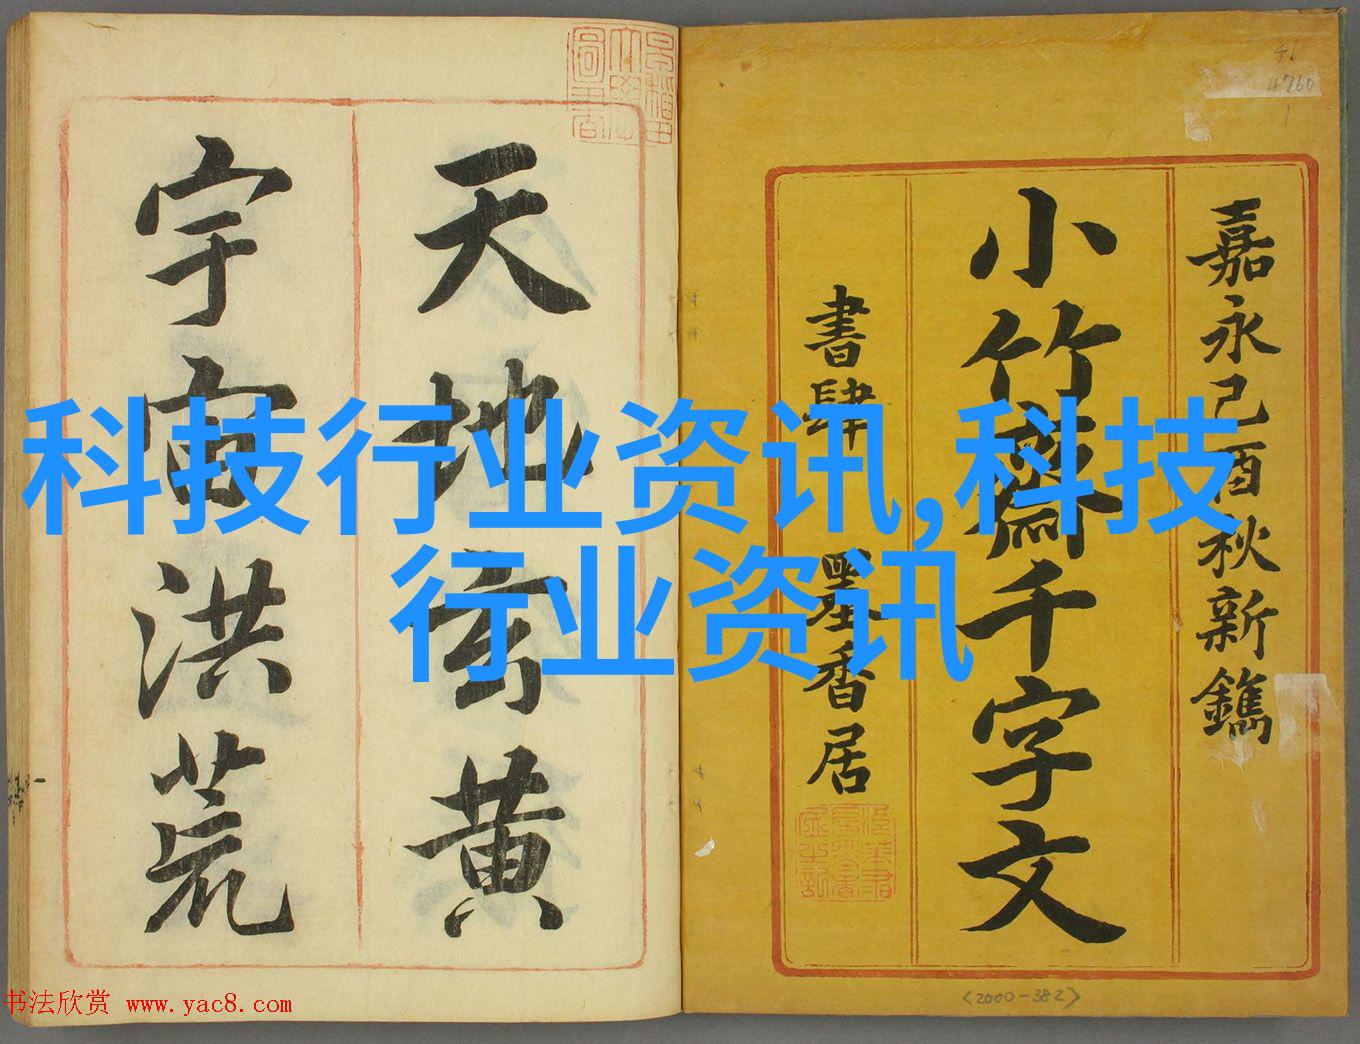 科技行业资讯,科技
行业资讯
嘉永己酉秋新鐫
小竹齋千字文
書肆 墨香居
天地玄黄
宇宙洪荒
46
4760
<2000-382>
书法欣赏 www.yac8.com